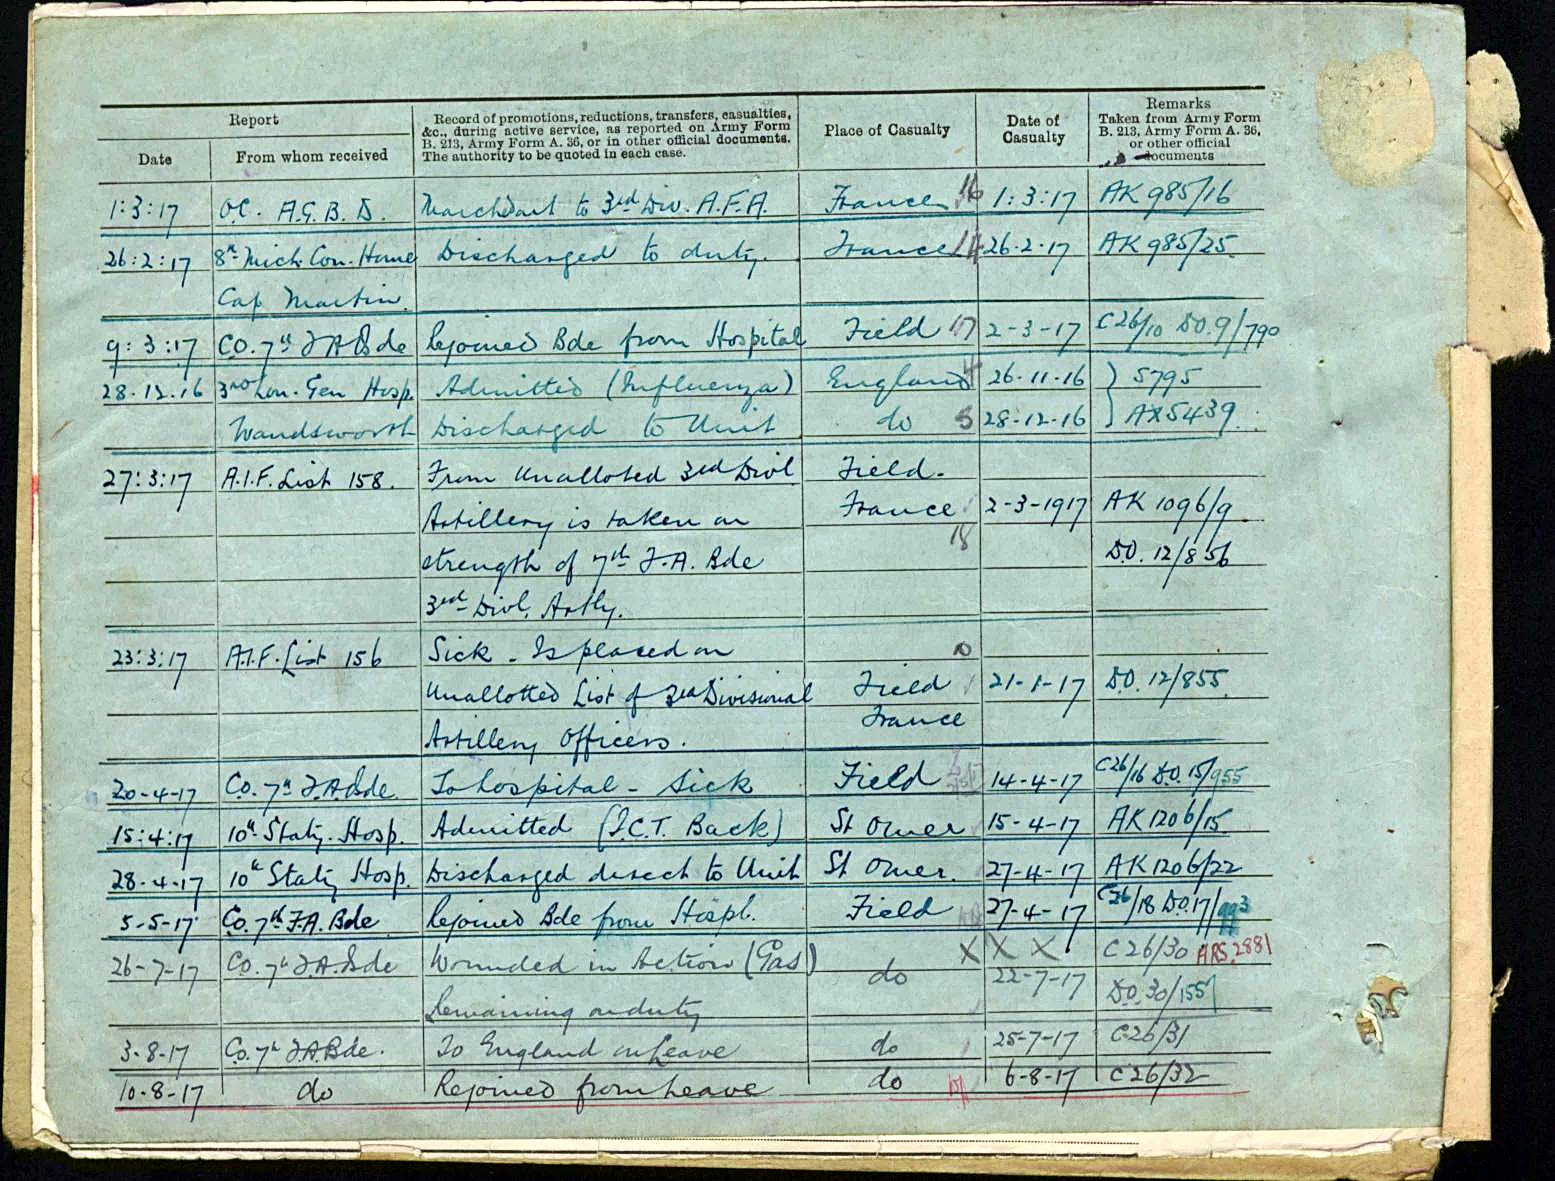 Report
Record of promotions, reductions, transfers, casualties,
&c., during active service, as reported on Army Form
B. 213, Army Form A. 36, or in other official documents.
The authority to be quoted in each case.
Place of Casualty
Date of
Casualty
Remarks
Taken from Army Form
B. 213, Army Form A. 36,
or other official
documents
Date From whom received
1:3:17 O.C. A.G.B.D. Marched out to 3rd Div. A.F.A. France 16 1:3:17 AK 985/16
26:2:17 8th Mich. Con. Home Discharged to duty. France 26-2-17 AK 985/25.
Cap Martin
9:3:17 CO. 7th F.A. Bde Rejoined Bde from Hospital Field 17 2-3-17 C26/10 DO.9/790
28.12.16 3rd Lon. Gen Hosp. Admitted (Influenza) England 26-11-16 } 5795
Wandsworth Discharged to Unit do 5 28-12-16 } AX5439.
27:3:17 A.I.F. List 158. From Unalloted 3rd Divl Field.
Artillery is taken on France 2-3-1917 AK 1096/9
strength of 7th F.A. Bde 18 DO. 12/856
3rd Divl. Artly.
23:3:17 A.I.F. List 156 Sick - Is placed on
Unallotted List of 3rd Divisional Field 21-1-17 DO. 12/855.
Artillery Officers. France
20-4-17 Co. 7th F.A. Bde. To hospital - Sick Field 14-4-17 C26/16 DO.15/955
15:4:17 10th Staty. Hosp. Admitted (I.C.T. Back) St Omer 15-4-17 AK1206/15.
28-4-17 10th Staty Hosp. Discharged direct to Unit St Omer. 27-4-17 AK1206/22
5-5-17 Co. 7th F.A. Bde Rejoined Bde from Hospl. Field 27-4-17 C26/18 DO.17/993
26-7-17 Co. 7th F.A. Bde Wounded in Action (Gas) do X X X 22-7-17 C26/30 ARS.2881
Remaining on duty DO.30/1551
3-8-17 Co. 7th F.A. Bde. To England on Leave do 25-7-17 C26/31
10-8-17 do Rejoined from Leave do 6-8-17 C26/32